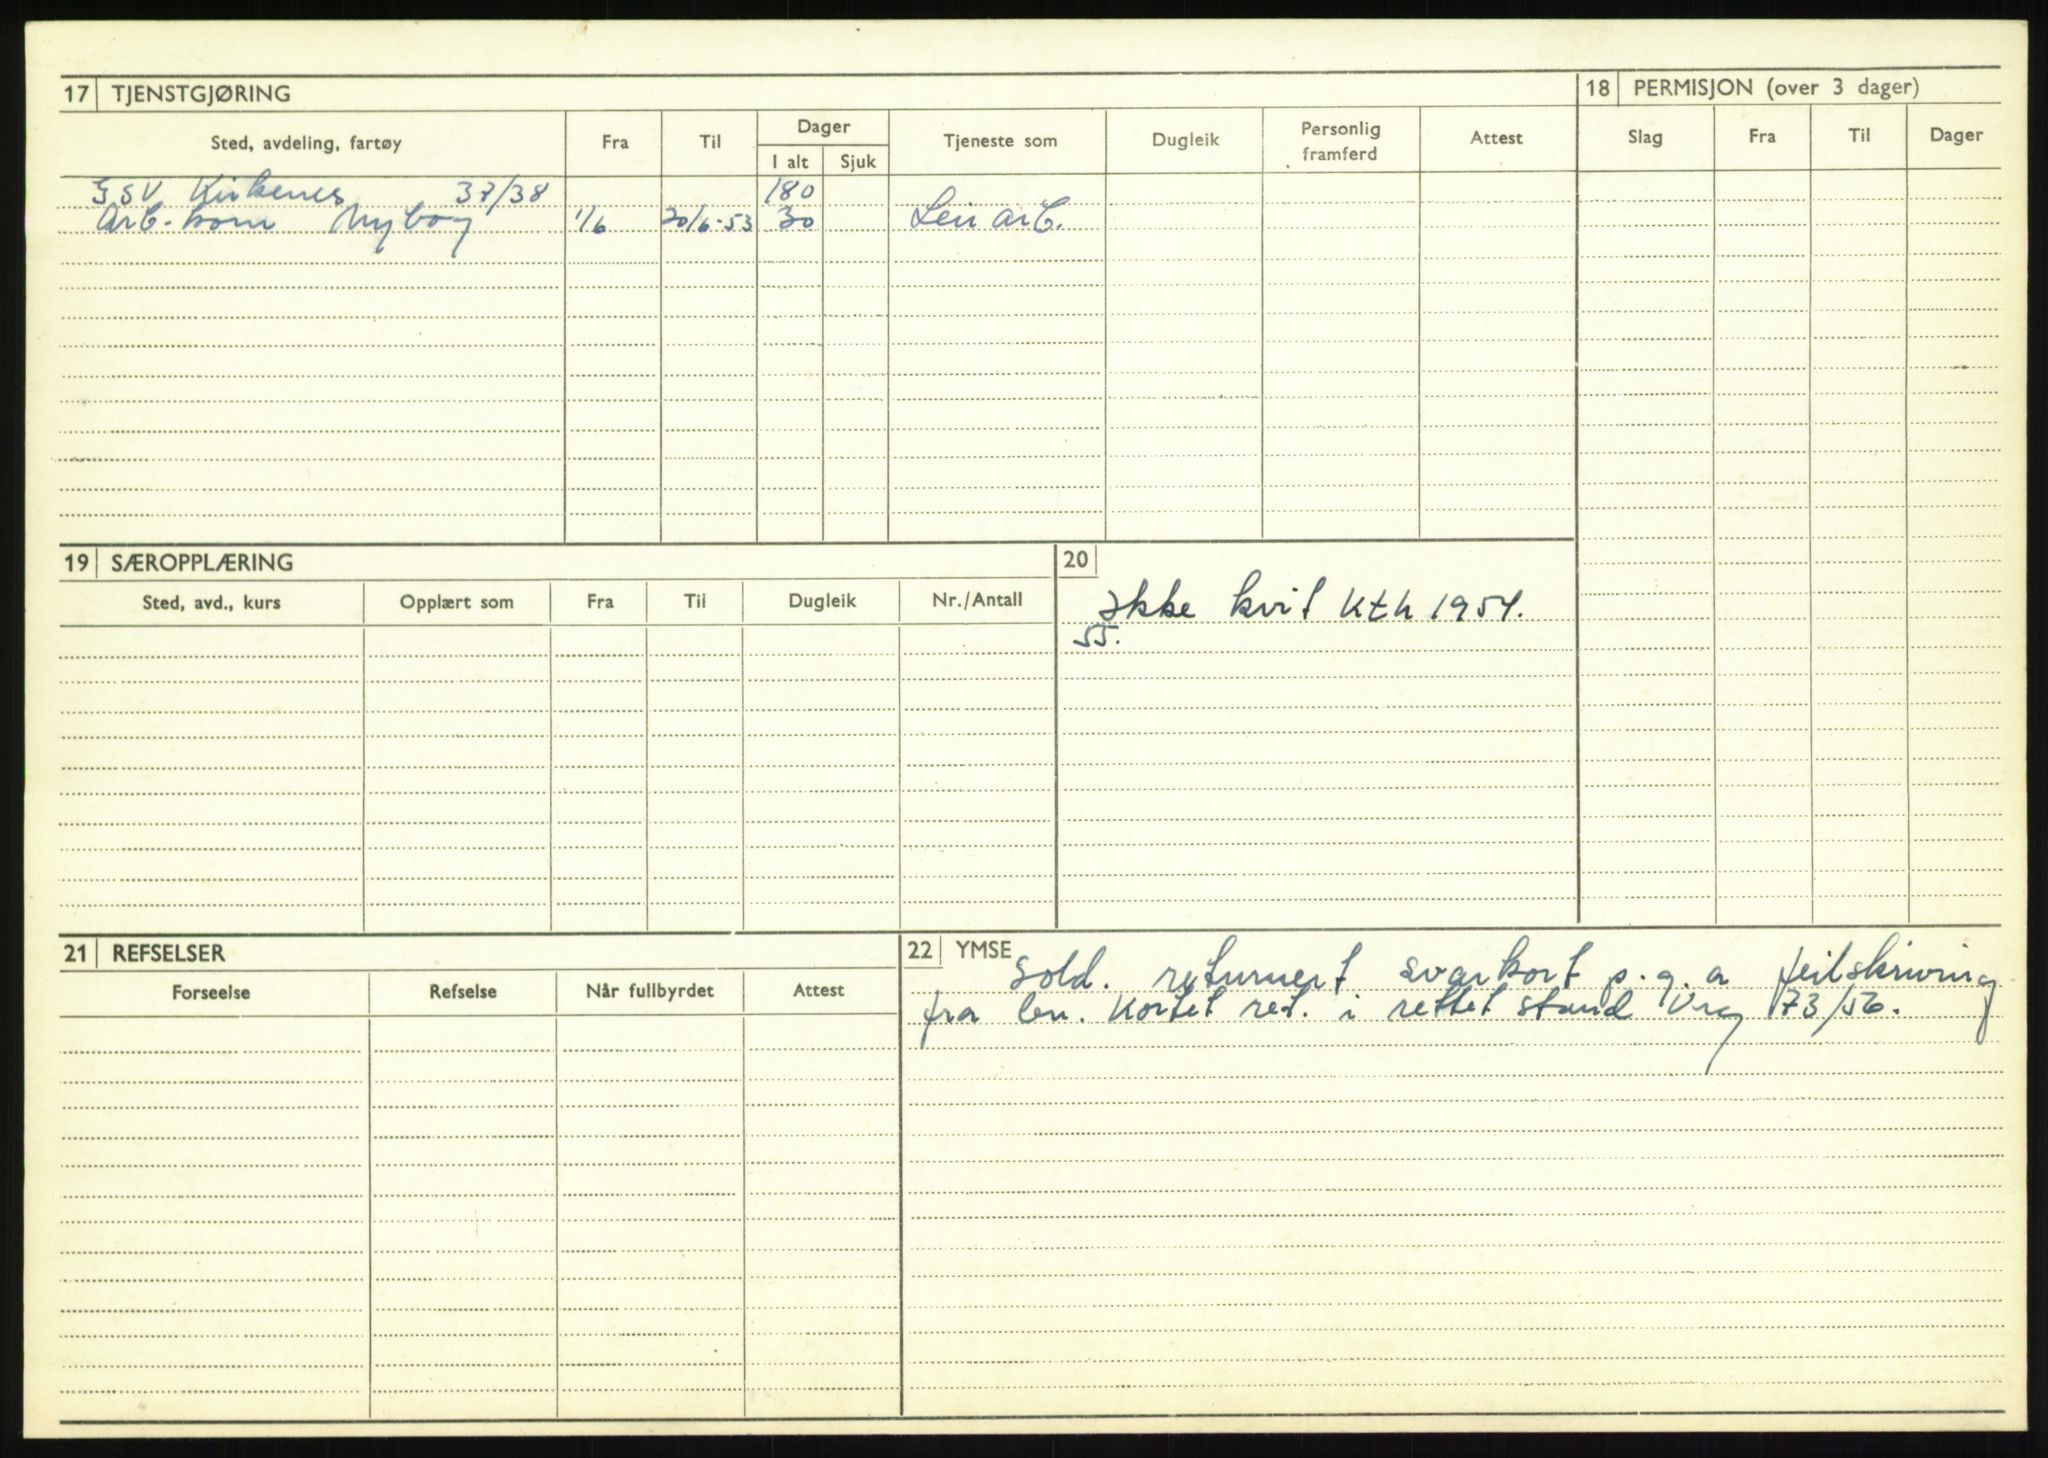 17 TJENSTGJØRING
Sted, avdeling, fartøy Fra Til Dager Tjeneste som Dugleik Personlig framferd Attest
I alt Sjuk
GSV Kirkenes 37/38 180
Arb. kom Nyborg 1/6 20/6-53 30 Leir arb.
18 PERMISJON (over 3 dager)
Slag Fra Til Dager
19 SÆROPPLÆRING
Sted, avd., kurs Opplært som Fra Til Dugleik Nr./Antall
20
Ikke kvit Kth 1954.
55.
21 REFSELSER
Forseelse Refselse Når fullbyrdet Attest
22 YMSE
Sold. returnert svarkort p.g.a feilskriving
fra len. Kortet ret. i rettet stand 173/56.